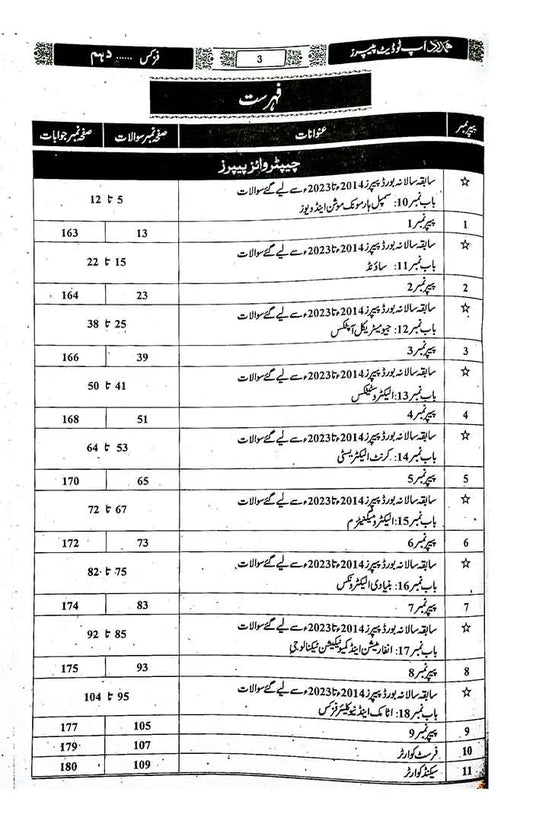 ہمدرد اَپ ٹو ڈیٹ پیپرز 3 فزکس ...... دہم
فہرست
پیپر نمبر عنوانات صفحہ نمبر سوالات صفحہ نمبر جوابات
چیپٹر وائز پیپرز
☆ سابقہ سالانہ بورڈ پیپرز 2014ء تا 2023ء سے لیے گئے سوالات
باب نمبر 10: سمپل ہارمونک موشن اینڈ ویوز 5 تا 12
1 پیپر نمبر 1 13 163
☆ سابقہ سالانہ بورڈ پیپرز 2014ء تا 2023ء سے لیے گئے سوالات
باب نمبر 11: ساؤنڈ 15 تا 22
2 پیپر نمبر 2 23 164
☆ سابقہ سالانہ بورڈ پیپرز 2014ء تا 2023ء سے لیے گئے سوالات
باب نمبر 12: جیومیٹریکل آپٹکس 25 تا 38
3 پیپر نمبر 3 39 166
☆ سابقہ سالانہ بورڈ پیپرز 2014ء تا 2023ء سے لیے گئے سوالات
باب نمبر 13: الیکٹروسٹیٹکس 41 تا 50
4 پیپر نمبر 4 51 168
☆ سابقہ سالانہ بورڈ پیپرز 2014ء تا 2023ء سے لیے گئے سوالات
باب نمبر 14: کرنٹ الیکٹریسٹی 53 تا 64
5 پیپر نمبر 5 65 170
☆ سابقہ سالانہ بورڈ پیپرز 2014ء تا 2023ء سے لیے گئے سوالات
باب نمبر 15: الیکٹرومیگنیٹزم 67 تا 72
6 پیپر نمبر 6 73 172
☆ سابقہ سالانہ بورڈ پیپرز 2014ء تا 2023ء سے لیے گئے سوالات
باب نمبر 16: بنیادی الیکٹرونکس 75 تا 82
7 پیپر نمبر 7 83 174
☆ سابقہ سالانہ بورڈ پیپرز 2014ء تا 2023ء سے لیے گئے سوالات
باب نمبر 17: انفارمیشن اینڈ کمیونیکیشن ٹیکنالوجی 85 تا 92
8 پیپر نمبر 8 93 175
☆ سابقہ سالانہ بورڈ پیپرز 2014ء تا 2023ء سے لیے گئے سوالات
باب نمبر 18: اٹامک اینڈ نیوکلیئر فزکس 95 تا 104
9 پیپر نمبر 9 105 177
10 فرسٹ کوارٹر 107 179
11 سیکنڈ کوارٹر 109 180